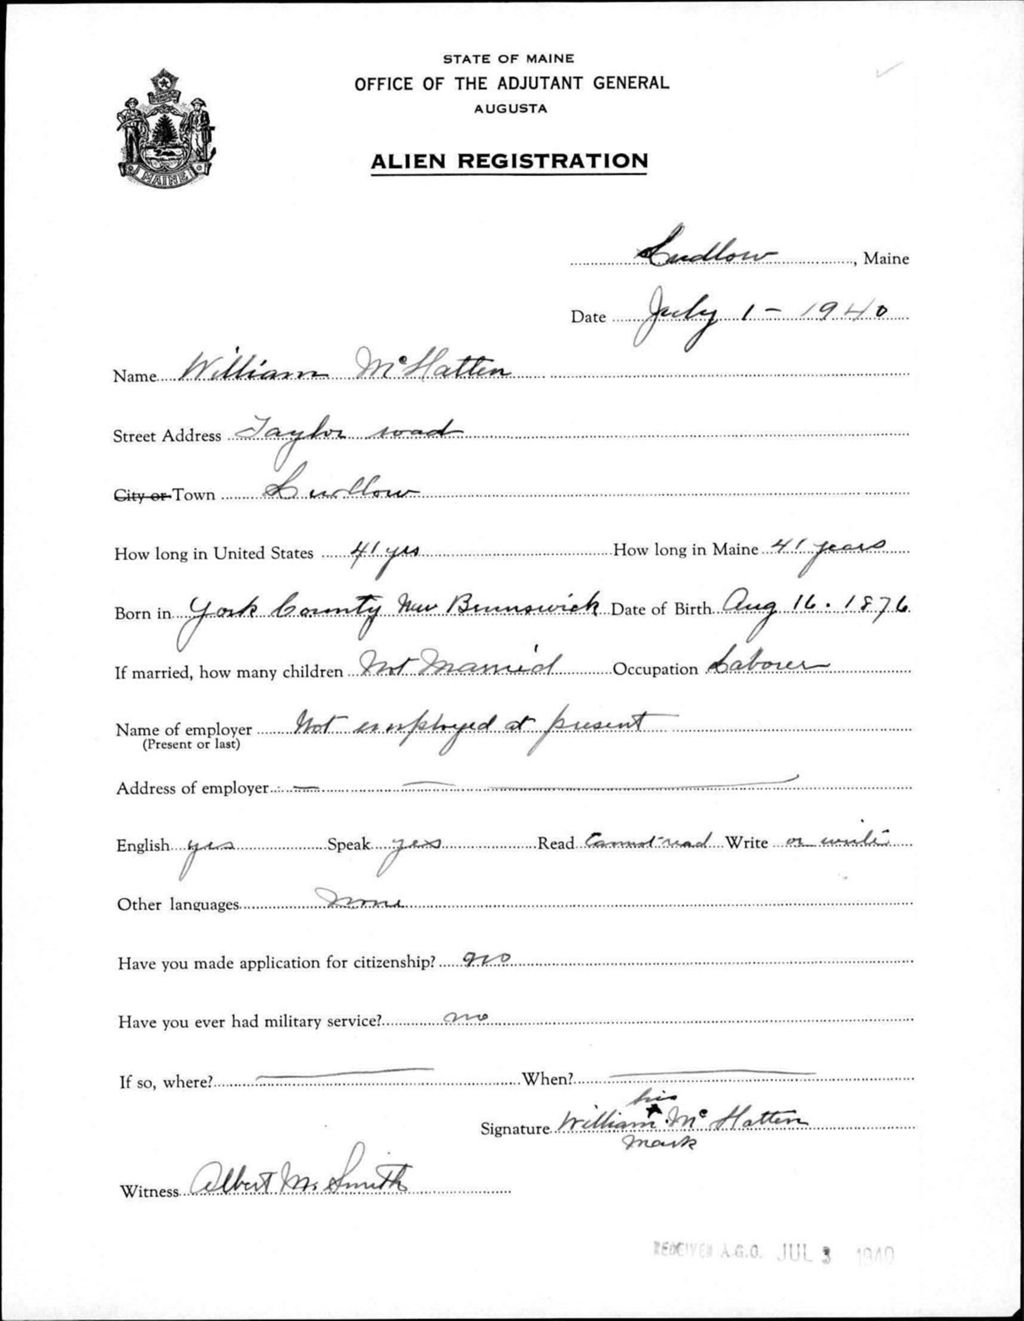 STATE OF MAINE
OFFICE OF THE ADJUTANT GENERAL
AUGUSTA
ALIEN REGISTRATION
MAINE
Ludlow, Maine
Date July 1 - 1940
Name William McHatten
Street Address Taylor road
City or Town Ludlow
How long in United States 41 yrs How long in Maine 41 years
Born in York County New Brunswick Date of Birth Aug 16. 1876
If married, how many children Not Married Occupation Laborer
Name of employer Not employed at present
(Present or last)
Address of employer
English yes Speak yes Read Cannot read Write or write
Other languages None
Have you made application for citizenship? no
Have you ever had military service? no
If so, where? When?
his
Signature William x McHatten
mark
Witness Albert M. Smith
RECEIVED A.G.O. JUL 3 1940